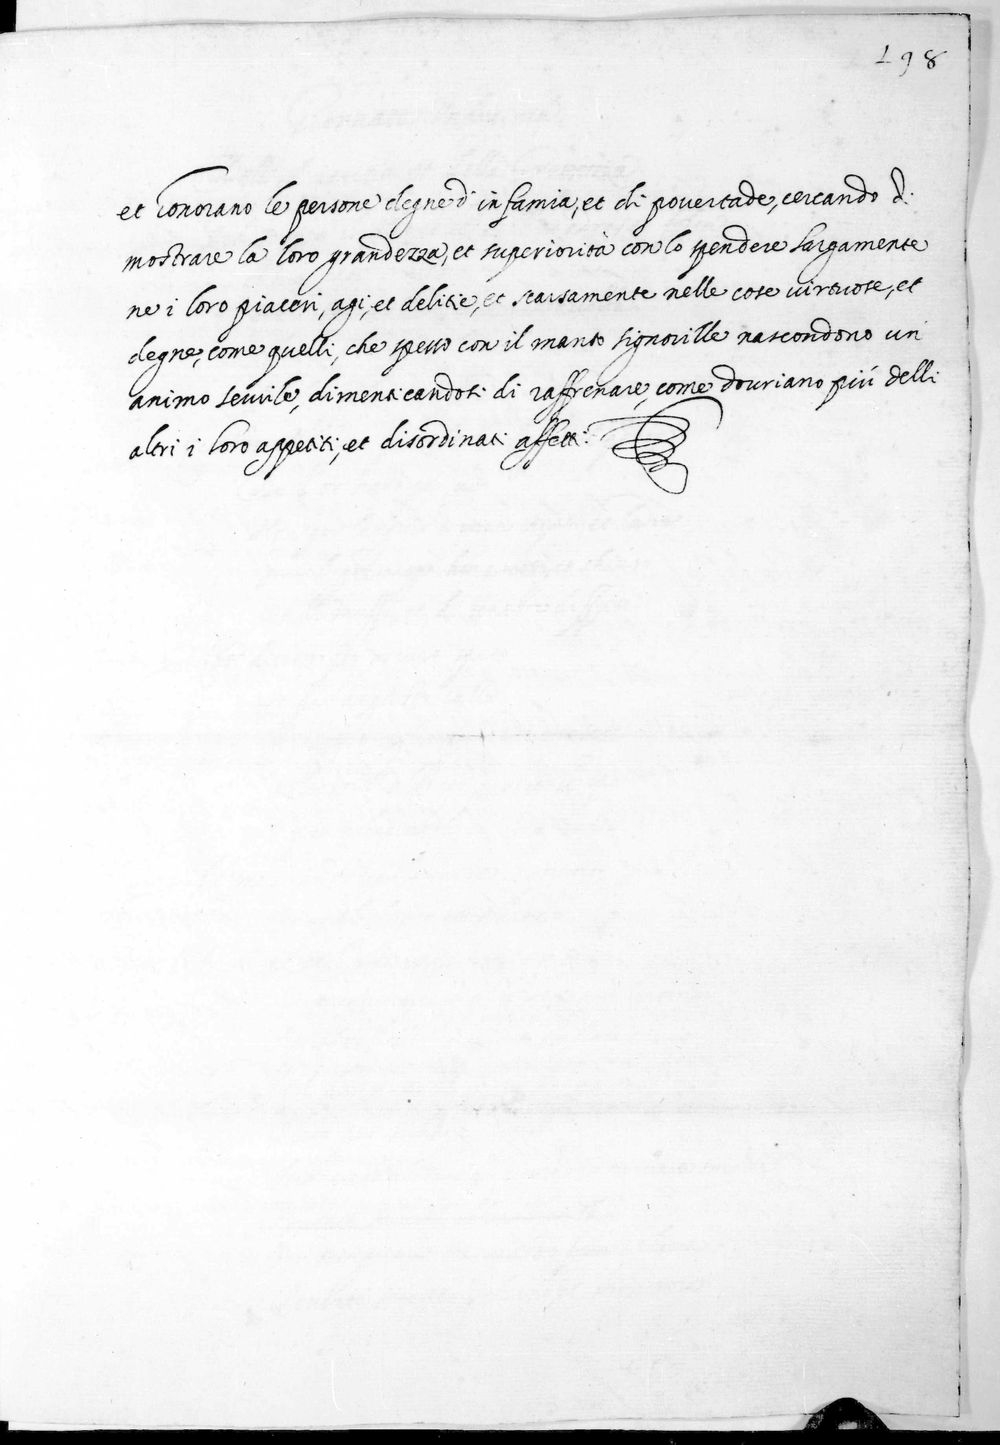 198
et honorano le persone degne d'infamia, et di povertade, cercando di
mostrare la loro grandezza, et superiorità con lo spendere largamente
ne i loro piaceri, agi, et delitie, et scarsamente nelle cose uirtuose, et
degne, come quelli, che spesso con il manto signorille nascondono un
animo seruile, dimenticandosi di raffrenare, come douriano più delli
altri i loro appetiti, et disordinati affetti.